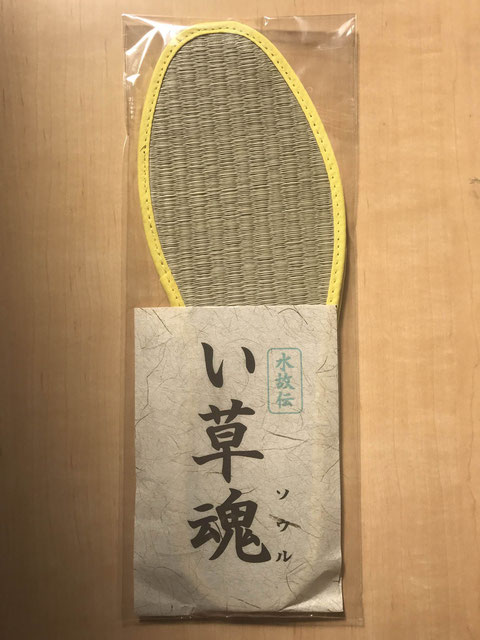 水故伝
い草魂
ソウル